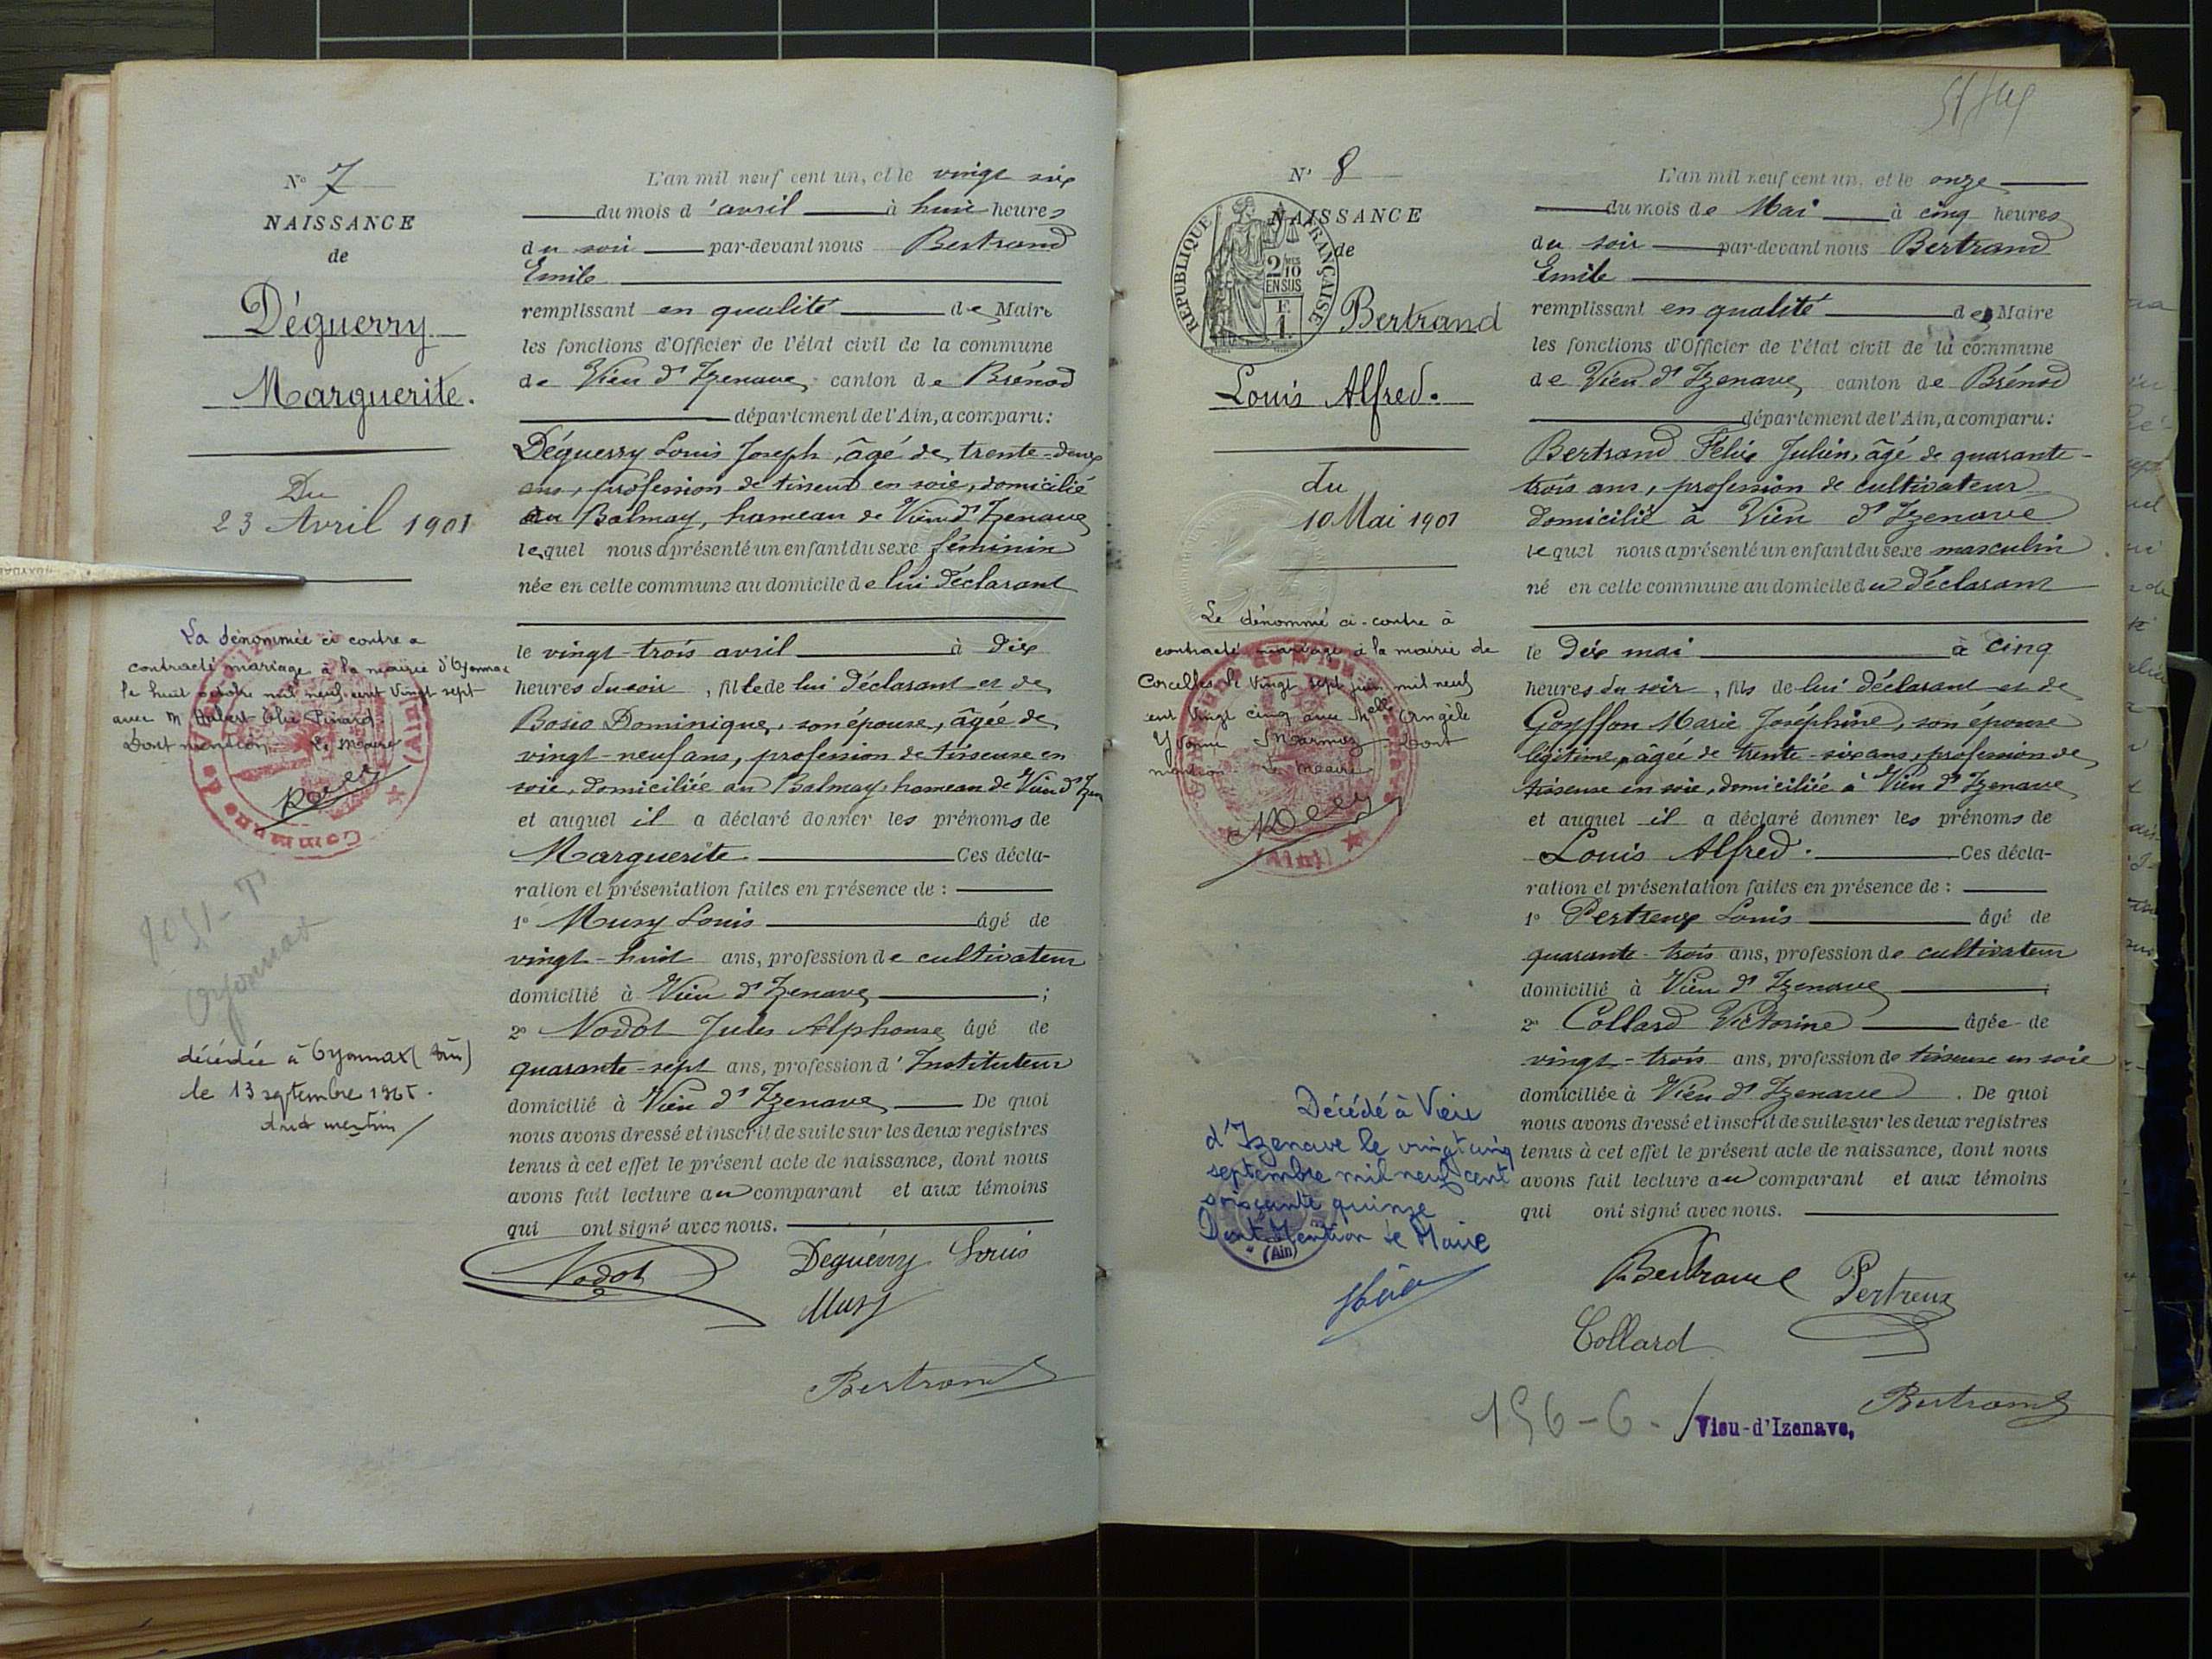 N° 7
NAISSANCE
de
Déguerry
Marguerite.
Du
23 Avril 1901
La dénommée ci contre a
contracté mariage à la mairie d'Oyonnax
le huit octobre mil neuf cent vingt sept
avec M. Hubert Elie Pinard
Dont mention. Le Maire
Oyonnax
décédée à Oyonnax (Ain)
le 13 septembre 1965.
dont mention
L'an mil neuf cent un, et le vingt six
du mois d'avril à huit heures
du soir par-devant nous Bertrand
Emile
remplissant en qualité de Maire
les fonctions d'Officier de l'état civil de la commune
de Vieu d'Izenave, canton de Brénod
département de l'Ain, a comparu:
Déguerry Louis Joseph, âgé de trente-deux
ans, profession de tisseur en soie, domicilié
au Balmay, hameau de Vieu d'Izenave
lequel nous a présenté un enfant du sexe féminin
née en cette commune au domicile de lui déclarant
le vingt-trois avril à dix
heures du soir, fille de lui déclarant et de
Bosio Dominique, son épouse, âgée de
vingt-neuf ans, profession de tisseuse en
soie, domiciliée au Balmay, hameau de Vieu d'Izen
et auquel il a déclaré donner les prénoms de
Marguerite Ces décla-
ration et présentation faites en présence de :
1° Musy Louis âgé de
vingt-huit ans, profession de cultivateur
domicilié à Vieu d'Izenave ;
2° Nodot Jules Alphonse âgé de
quarante-sept ans, profession d'Instituteur
domicilié à Vieu d'Izenave De quoi
nous avons dressé et inscrit de suite sur les deux registres
tenus à cet effet le présent acte de naissance, dont nous
avons fait lecture au comparant et aux témoins
qui ont signé avec nous.
Nodot Deguerry Louis
Musy
Bertrand
N° 8
NAISSANCE
de
RÉPUBLIQUE FRANÇAISE
2/10
EN SUS
Bertrand
Louis Alfred.
du
10 Mai 1901
Le dénommé ci-contre à
contracté mariage à la mairie de
Corcelles le vingt sept juin mil neuf
cent vingt cinq avec Melle Angèle
Yvonne Marmoz Dont
mention Le Maire
Décédé à Vieu
d'Izenave le vingt cinq
septembre mil neuf cent
soixante quinze
Dont Mention le Maire
(Ain)
L'an mil neuf cent un, et le onze
du mois de Mai à cinq heures
du soir par-devant nous Bertrand
Emile
remplissant en qualité de Maire
les fonctions d'Officier de l'état civil de la commune
de Vieu d'Izenave, canton de Brénod
département de l'Ain, a comparu:
Bertrand Félix Julien, âgé de quarante-
trois ans, profession de cultivateur
domicilié à Vieu d'Izenave
lequel nous a présenté un enfant du sexe masculin
né en cette commune au domicile du déclarant
le dix mai à cinq
heures du soir, fils de lui déclarant et de
Goyffon Marie Joséphine, son épouse
légitime, âgée de trente-six ans, profession de
tisseuse en soie, domiciliée à Vieu d'Izenave
et auquel il a déclaré donner les prénoms de
Louis Alfred. Ces décla-
ration et présentation faites en présence de :
1° Pertreux Louis âgé de
quarante-trois ans, profession de cultivateur
domicilié à Vieu d'Izenave ;
2° Collard Victorine âgée de
vingt-trois ans, profession de tisseuse en soie
domiciliée à Vieu d'Izenave. De quoi
nous avons dressé et inscrit de suite sur les deux registres
tenus à cet effet le présent acte de naissance, dont nous
avons fait lecture au comparant et aux témoins
qui ont signé avec nous.
Bertrand Pertreux
Collard
Bertrand
196-6-
Vieu-d'Izenave,